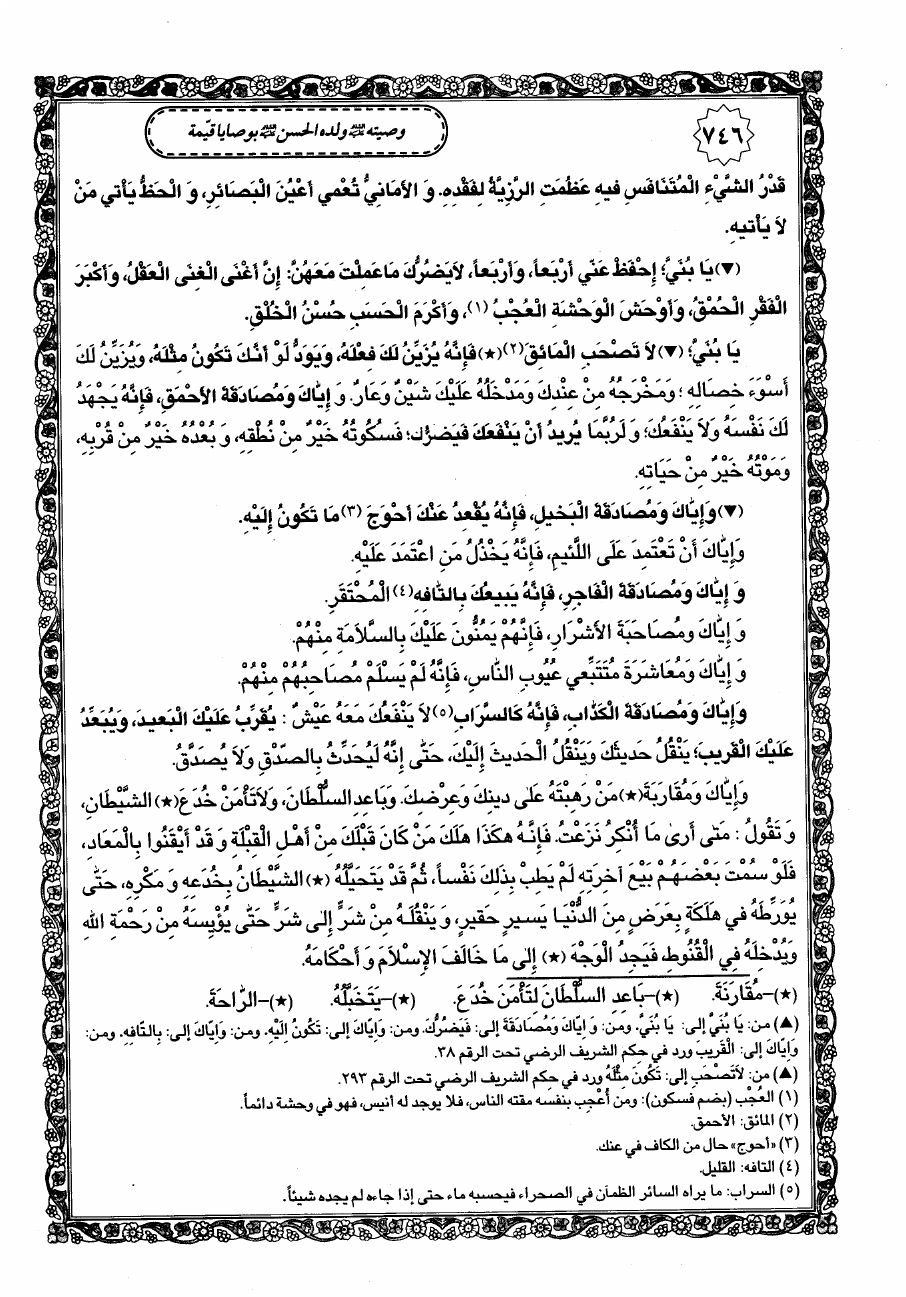 ٧٤٦
وصيته ﵇ ولده الحسن ﵇ بوصايا قيّمة
قَدْرُ الشَّيْءِ الْمُتَنَافَسِ فيهِ عَظُمَتِ الرَّزِيَّةُ لِفَقْدِهِ. وَ الأَمَانِيُّ تُعْمي أَعْيُنَ الْبَصَائِرِ، وَ الْحَظُّ يَأْتي مَنْ
لاَ يَأْتيهِ.
(▼) يَا بُنَيَّ؛ إِحْفَظْ عَنّي أَرْبَعاً، وَأَرْبَعاً، لاَيَضُرُّكَ مَاعَمِلْتَ مَعَهُنَّ: إِنَّ أَغْنَى الْغِنَى الْعَقْلُ، وَأَكْبَرَ
الْفَقْرِ الْحُمْقُ، وَأَوْحَشَ الْوَحْشَةِ الْعُجْبُ (١)، وَأَكْرَمَ الْحَسَبِ حُسْنُ الْخُلْقِ.
يَا بُنَيَّ؛ (▼) لاَ تَصْحَبِ الْمَائِقَ (٢) (★) فَإِنَّهُ يُزَيِّنُ لَكَ فِعْلَهُ، وَيَوَدُّ لَوْ أَنَّكَ تَكُونُ مِثْلَهُ، وَيُزَيِّنُ لَكَ
أَسْوَءَ خِصَالِهِ؛ وَمَخْرَجُهُ مِنْ عِنْدِكَ وَمَدْخَلُهُ عَلَيْكَ شَيْنٌ وَعَارٌ. وَ إِيّاكَ وَمُصَادَقَةَ الأَحْمَقِ، فَإِنَّهُ يَجْهَدُ
لَكَ نَفْسَهُ وَلاَ يَنْفَعُكَ؛ وَ لَرُبَّمَا يُريدُ أَنْ يَنْفَعَكَ فَيَضُرُّك؛ فَسُكُوتُهُ خَيْرٌ مِنْ نُطْقِهِ، وَ بُعْدُهُ خَيْرٌ مِنْ قُرْبِهِ،
وَمَوْتُهُ خَيْرٌ مِنْ حَيَاتِهِ.
(▼) وَإِيّاكَ وَمُصَادَقَةَ الْبَخيلِ، فَإِنَّهُ يُقْعِدُ عَنْكَ أَحْوَجَ (٣) مَا تَكُونُ إِلَيْهِ.
وَإِيّاكَ أَنْ تَعْتَمِدَ عَلَى اللَّئيمِ، فَإِنَّهُ يَخْذُلُ مَنِ اعْتَمَدَ عَلَيْهِ.
وَ إِيّاكَ وَمُصَادَقَةَ الْفَاجِرِ، فَإِنَّهُ يَبيعُكَ بِالتّافِهِ (٤) الْمُحْتَقَرِ.
وَ إِيّاكَ ومُصَاحَبَةَ الأَشْرَارِ، فَإِنَّهُمْ يَمُنُّونَ عَلَيْكَ بِالسَّلاَمَةِ مِنْهُمْ.
وَ إِيّاكَ وَمُعَاشَرَةَ مُتَتَبِّعي عُيُوبِ النّاسِ، فَإِنَّهُ لَمْ يَسْلَمْ مُصَاحِبُهُمْ مِنْهُمْ.
وَإِيّاكَ وَمُصَادَقَةَ الْكَذّابِ، فَإِنَّهُ كَالسَّرَابِ (٥) لاَ يَنْفَعُكَ مَعَهُ عَيْشٌ: يُقَرِّبُ عَلَيْكَ الْبَعيدَ، وَيُبَعِّدُ
عَلَيْكَ الْقَريبَ؛ يَنْقُلُ حَديثَكَ وَيَنْقُلُ الْحَديثَ إِلَيْكَ، حَتّى إِنَّهُ لَيُحَدِّثُ بِالصِّدْقِ وَلاَ يُصَدَّقُ.
وَإِيّاكَ وَمُقَارَبَةَ (★) مَنْ رَهِبْتَهُ عَلى دينِكَ وَعِرْضِكَ. وَبَاعِدِ السُّلْطَانَ، وَلاَتَأْمَنْ خُدَعَ (★) الشَّيْطَانِ،
وَ تَقُولُ: مَتى أَرى مَا أُنْكِرُ نَزَعْتُ. فَإِنَّهُ هكَذَا هَلَكَ مَنْ كَانَ قَبْلَكَ مِنْ أَهْلِ الْقِبْلَةِ وَ قَدْ أَيْقَنُوا بِالْمَعَادِ،
فَلَوْ سُمْتَ بَعْضَهُمْ بَيْعَ آخِرَتِهِ لَمْ يَطِبْ بِذلِكَ نَفْساً، ثُمَّ قَدْ يَتَحَيَّلُهُ (★) الشَّيْطَانُ بِخُدَعِهِ وَ مَكْرِهِ، حَتّى
يُوَرِّطَهُ في هَلَكَةٍ بِعَرَضٍ مِنَ الدُّنْيَا يَسيرٍ حَقيرٍ، وَ يَنْقُلَهُ مِنْ شَرٍّ إِلى شَرٍّ حَتّى يُؤْيِسَهُ مِنْ رَحْمَةِ اللهِ
وَيُدْخِلَهُ فِي الْقُنُوطِ، فَيَجِدُ الْوَجْهَ (★) إِلى مَا خَالَفَ الإِسْلاَمَ وَ أَحْكَامَهُ.
(★)-مُقَارَنَةَ. (★)-بَاعِدِ السُّلْطَانَ لِتَأْمَنَ خُدَعَ. (★)-يَتَخَبَّلُهُ. (★)-الرّاحَةَ.
(▲) من: يَا بُنَيَّ إلى: يَا بُنَيَّ. ومن: وَ إِيّاكَ وَمُصَادَقَةَ إلى: فَيَضُرُّكَ. ومن: وَإِيّاكَ إلى: تَكُونُ إِلَيْهِ. ومن: وَإِيّاكَ إلى: بِالتّافِهِ. ومن:
وَإِيّاكَ إلى: الْقَريبَ ورد في حكم الشريف الرضي تحت الرقم ٣٨.
(▲) من: لاَتَصْحَبِ إلى: تَكُونَ مِثْلَهُ ورد في حكم الشريف الرضي تحت الرقم ٢٩٣.
(١) العُجْب (بضم فسكون): ومن أُعْجِب بنفسه مقته الناس، فلا يوجد له أنيس، فهو في وحشة دائماً.
(٢) المائق: الأحمق.
(٣) «أحوج» حال من الكاف في عنك.
(٤) التافه: القليل.
(٥) السراب: ما يراه السائر الظمآن في الصحراء فيحسبه ماء حتى إذا جاءه لم يجده شيئاً.